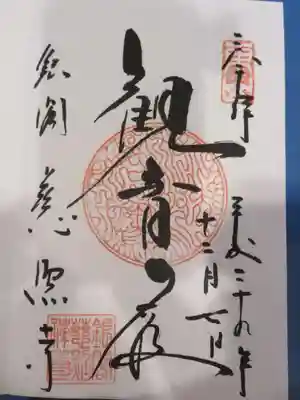 奉拝
平成二十九年
十二月七日
観音殿
銀閣慈照寺